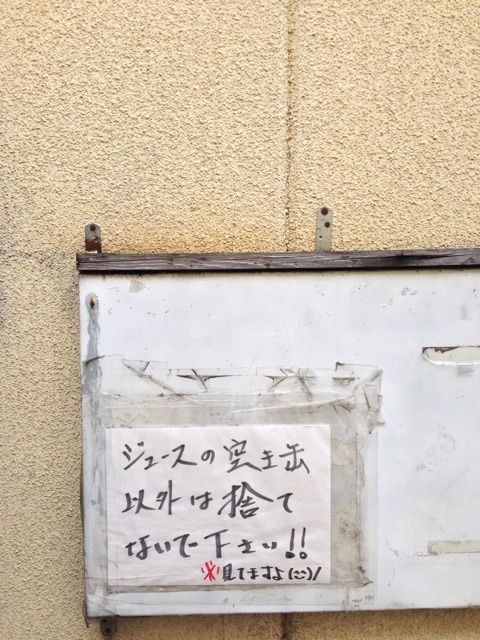 ジュースの空き缶
以外は捨て
ないで下さい!!
※見てますよ(ニニ)/